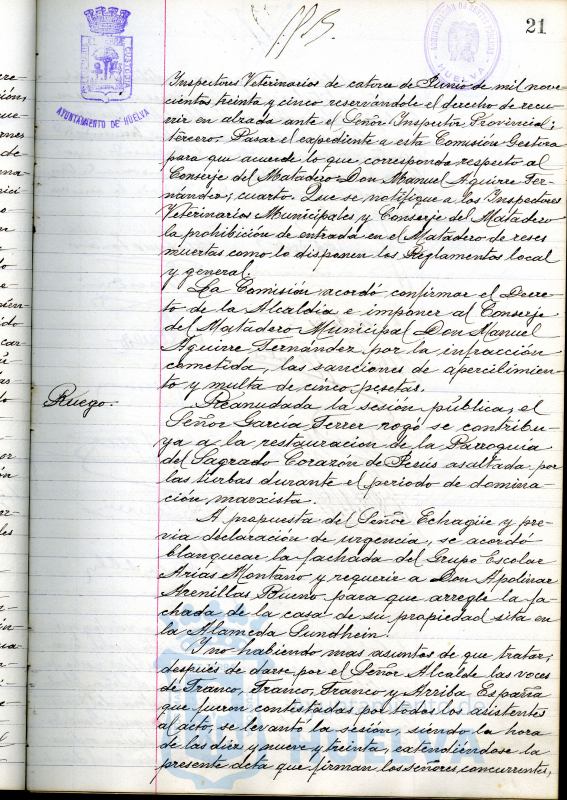 21
AYUNTAMIENTO DE HUELVA
Inspectores Veterinarios de catorce de Junio de mil nove-
cientos treinta y cinco reservándole el derecho de recu-
rrir en alzada ante el Señor Inspector Provincial;
tercero. Pasar el expediente a esta Comisión Gestora
para que acuerde lo que corresponda respecto al
Conserje del Matadero Don Manuel Aguirre Fer-
nández; cuarto. Que se notifique a los Inspectores
Veterinarios Municipales y Conserje del Matadero
la prohibición de entrada en el Matadero de reses
muertas como lo disponen los Reglamentos local
y general.
La Comisión acordó confirmar el Decre-
to de la Alcaldía e imponer al Conserje
del Matadero Municipal Don Manuel
Aguirre Fernández por la infracción
cometida, las sanciones de apercibimien-
to y multa de cinco pesetas.
Ruego.
Reanudada la sesión pública, el
Señor García Ferrer rogó se contribu-
ya a la restauración de la Parroquia
del Sagrado Corazón de Jesús asaltada por
las turbas durante el periodo de domina-
ción marxista.
A propuesta del Señor Echagüe y pre-
via declaración de urgencia, se acordó
blanquear la fachada del Grupo Escolar
Arias Montano y requerir a Don Apolinar
Arenillas Bueno para que arregle la fa-
chada de la casa de su propiedad sita en
la Alameda Sundhein.
Y no habiendo mas asuntos de que tratar,
después de darse por el Señor Alcalde las voces
de Franco, Franco, Franco y Arriba España
que fueron contestadas por todos los asistentes
al acto, se levantó la sesión, siendo la hora
de las diez y nueve y treinta, extendiéndose la
presente acta que firman los señores concurrentes,